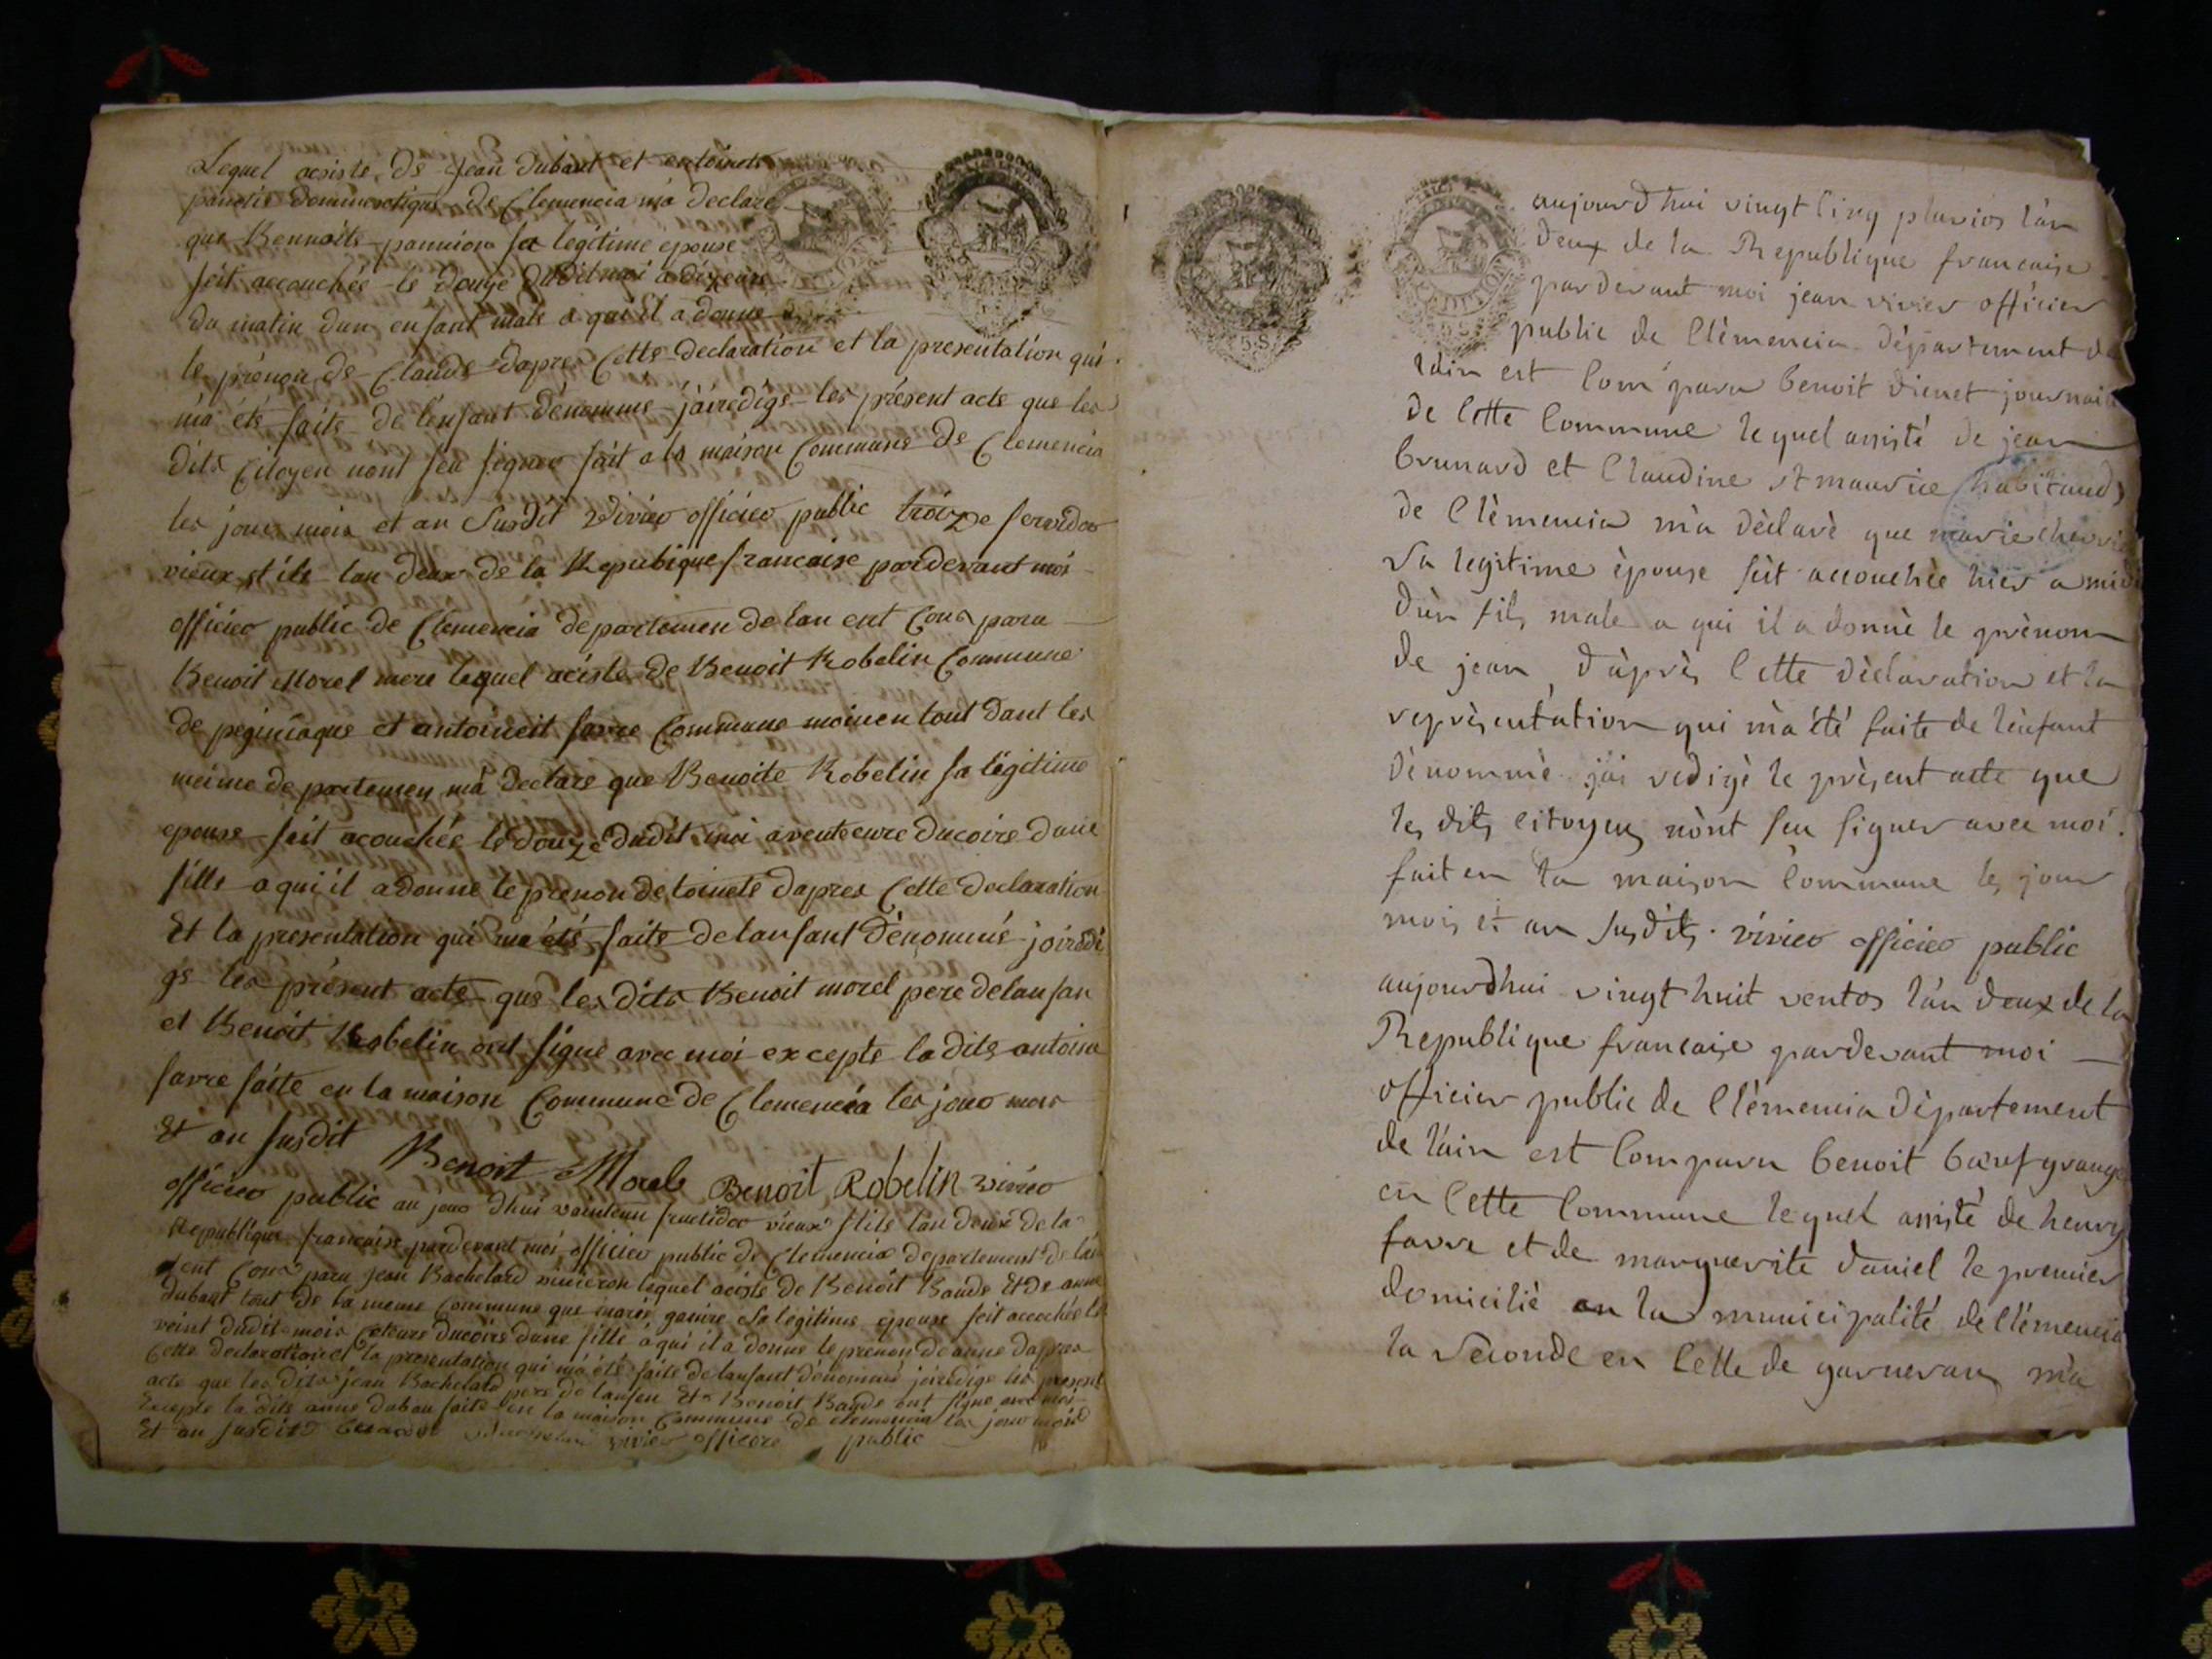 Lequel acsiste de Jean dubant et entoinete
panetie domméstique de Clemencia ma declare
que Bennoite pannion sa legitime epouse
seit accouchée le douze dudit moi a dix eure
du matin dun enfant male a qui il a donne
le prénon de Claude dapres Cette declaration et la presentation qui
ma été faite de lenfant dénommé jairedigé les présent acte que les
dits Citoyen nont seu signer fait a la maison Commune de Clemencia
les jour mois et an susdit vivier officier public treize fervidor
vieux stile lan deux de la Republique francaise pardevant moi
officier public de Clemencia departemen de lan ent Con para
Benoit Morel mere lequel aciste de Benoit Robelin Commune
de et antoineit favre Commune moinen tout dant les
meime departemen ma declare que Benoite Robelin sa légitime
epouse seit acouchée le douze dudit moi a eure ducoire dune
fille a qui il a donne le prenon de toinete dapres Cette declaration
Et la presentation qui ma été faite delanfant dénommé joiredi
ge les présent acte que les dits Benoit morel pere delanfan
et Benoit Robelin ont signe avec moi excepte la dite antoine
favre faite en la maison Commune de Clemencia les jour mois
Et an susdit Benoit Morel Benoit Robelin vivier
officier public au jour dhui vainteun fructidor vieux stile lan deuxe de la
Republique francaise pardevant moi officier public de Clemencia departement de lai
ent Con para jean Bachelard lequel aciste de Benoit Baude Et de anne
dubant tout de la meme Commune que marie sa legitime epouse seit acochée le
veint dudit mois eure ducoire dune fille a qui il a donne le prenon de anne dapres
Cette declaration et la presentation qui ma été faite delanfant dénommé joiredige les present
acte que les dits jean Bachelard pere de lanfen Et Benoit Baude ont signe avec moi
Excepte la dite anne duban faite en la maison Commune de clemencia les jour mois
Et an susdit vivier officere public
aujourd'hui vingt cinq pluvios l'an
deux de la Republique francaise
pardevant moi jean vivier officier
public de Clèmencia département de
l'ain est Com paru benoit vienet journail
de Cette Commune lequel assisté de jean
brunard et Claudine st maurice habitands
de Clèmencia m'a dèclarè que marie
sa legitime èpouse sèit accouchèe hier a midi
d'un fils male a qui il a donnè le prènom
de jean, d'àprès Cette dèclaration et la
reprèsentation qui m'a été faite de l'enfant
dènommè j'ai redigè le prèsent acte que
les dits citoyens n'ont seu signer avec moi.
fait en la maison Commune les jour
mois et an susdits. vivier officier public
aujourdhui vingt huit ventos l'an deux de la
Republique francaise pardevant moi
officier public de Clèmencia département
de l'ain est Comparu benoit bœuf granger
en Cette Commune lequel assisté de henry
favre et de marguerite daniel le premier
domicilié en la municipalité de Clémencia
la seconde en Celle de garnerans m'a